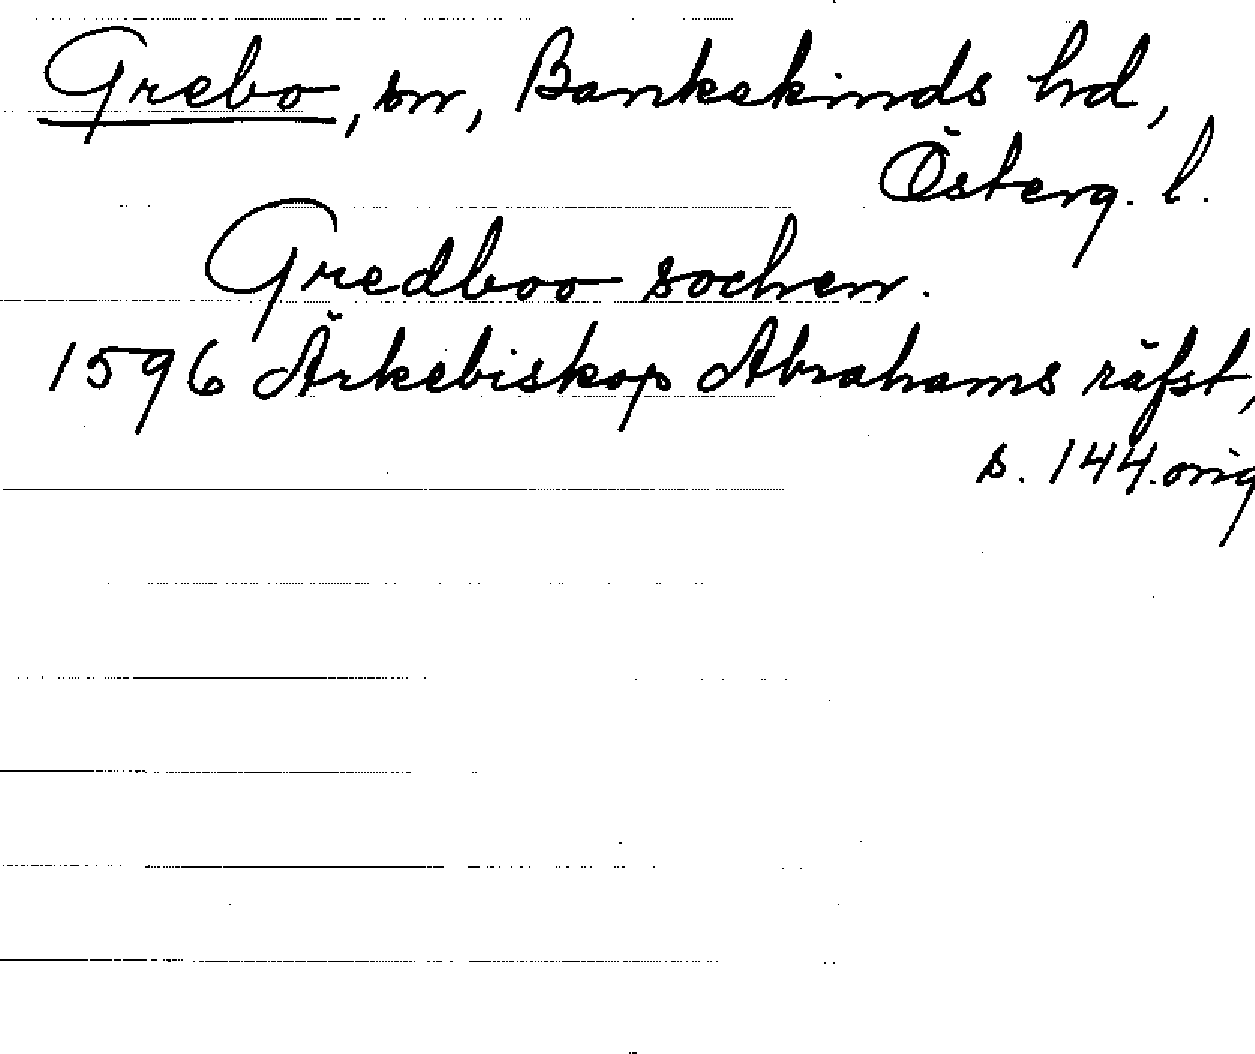 Grebo, sn, Bankekinds hd,
Österg. l.
Gredboo sochen.
1596 Ärkebiskop Abrahams räfst,
s. 144. orig